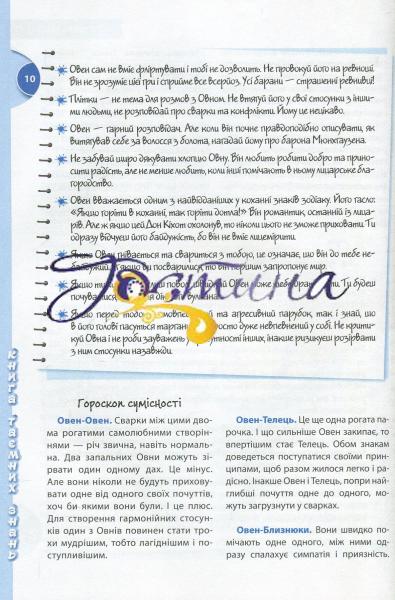 10
Овен сам не вміє фліртувати і тобі не дозволить. Не провокуй його на ревнощі.
Він не зрозуміє цієї гри і сприйме все всерйоз. Усі барани — страшенні ревнивці!
Плітки — не тема для розмов з Овном. Не втягуй його у свої стосунки з інши-
ми людьми, не розповідай про сварки та конфлікти. Йому це нецікаво.
Овен — гарний розповідач. Але коли він почне правдоподібно описувати, як
витягував себе за волосся з болота, нагадай йому про барона Мюнхгаузена.
Не забувай щиро дякувати хлопцю Овну. Він любить робити добро та прино-
сити радість, але не менше любить, коли інші помічають в ньому лицарське бла-
городство.
Овен вважається одним з найвідданіших у коханні знаків зодіаку. Його гасло:
«Якщо горіти в коханні, так горіти дотла!» Він романтик, останній із лица-
рів. Але ж якщо цей Дон Кіхот охолонув, то ніколи цього не зможе приховати. Ти
одразу відчуєш його байдужість, бо він не вміє лицемірити.
Якщо Овен гнівається та свариться з тобою, це означає, що він до тебе не-
байдужий. Якщо ви посварилися, то він першим запропонує мир.
Якщо ти
Овен
Ти будеш
почуватися
Якщо перед тобою
і агресивний парубок, так і знай, що
в його голові пасуться таргани
просто дуже невпевнений у собі. Не крити-
куй Овна і не роби зауважень
присутності інших, інакше ризикуєш розірвати
з ним стосунки назавжди.
Достина
книга таємних знань
Гороскоп сумісності
Овен-Овен. Сварки між цими дво-
ма рогатими самолюбними створін-
нями — річ звична, навіть нормаль-
на. Два запальних Овни можуть зі-
рвати один одному дах. Це мінус.
Але вони ніколи не будуть прихову-
вати одне від одного своїх почуттів,
хоч би якими вони були. І це плюс.
Для створення гармонійних стосун-
ків один з Овнів повинен стати тро-
хи мудрішим, тобто лагіднішим і по-
ступливішим.
Овен-Телець. Це ще одна рогата па-
рочка. І що сильніше Овен закипає, то
впертішим стає Телець. Обом знакам
доведеться поступатися своїми прин-
ципами, щоб разом жилося легко і ра-
дісно. Інакше Овен і Телець, попри най-
глибші почуття одне до одного, мо-
жуть загрузнути у сварках.
Овен-Близнюки. Вони швидко по-
мічають одне одного, між ними од-
разу спалахує симпатія і приязність.